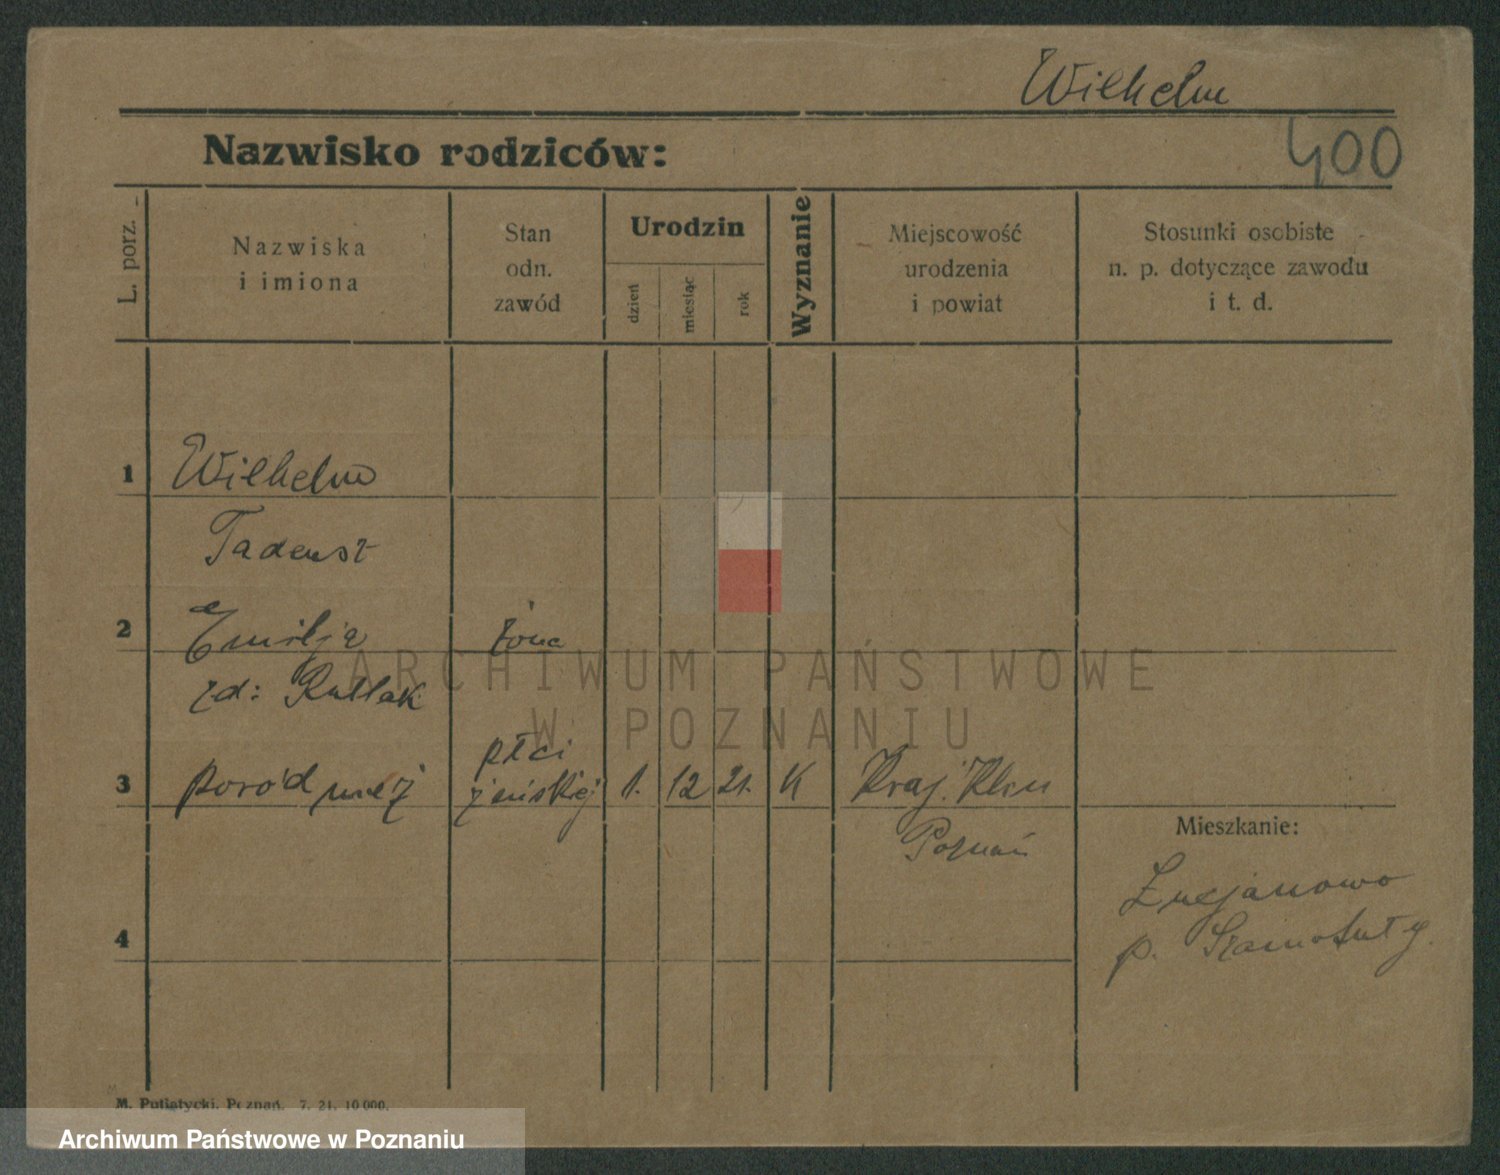 Wilhelm
Nazwisko rodziców:
400
L. porz.
Nazwiska
i imiona
Stan
odn.
zawód
Urodzin
dzień
miesiąc
rok
Wyznanie
Miejscowość
urodzenia
i powiat
Stosunki osobiste
n. p. dotyczące zawodu
i t. d.
1 Wilhelm
Tadeusz
2 Emilja żona
zd: Rullak
ARCHIWUM PAŃSTWOWE
W POZNANIU
płci
3 poród nież żeńskiej 1. 12 21. K Kraj. Klin
Poznań
Mieszkanie:
Lucjanowo
p. Szamotuły
4
M. Putiatycki, Poznań. 7. 21. 10 000.
Archiwum Państwowe w Poznaniu